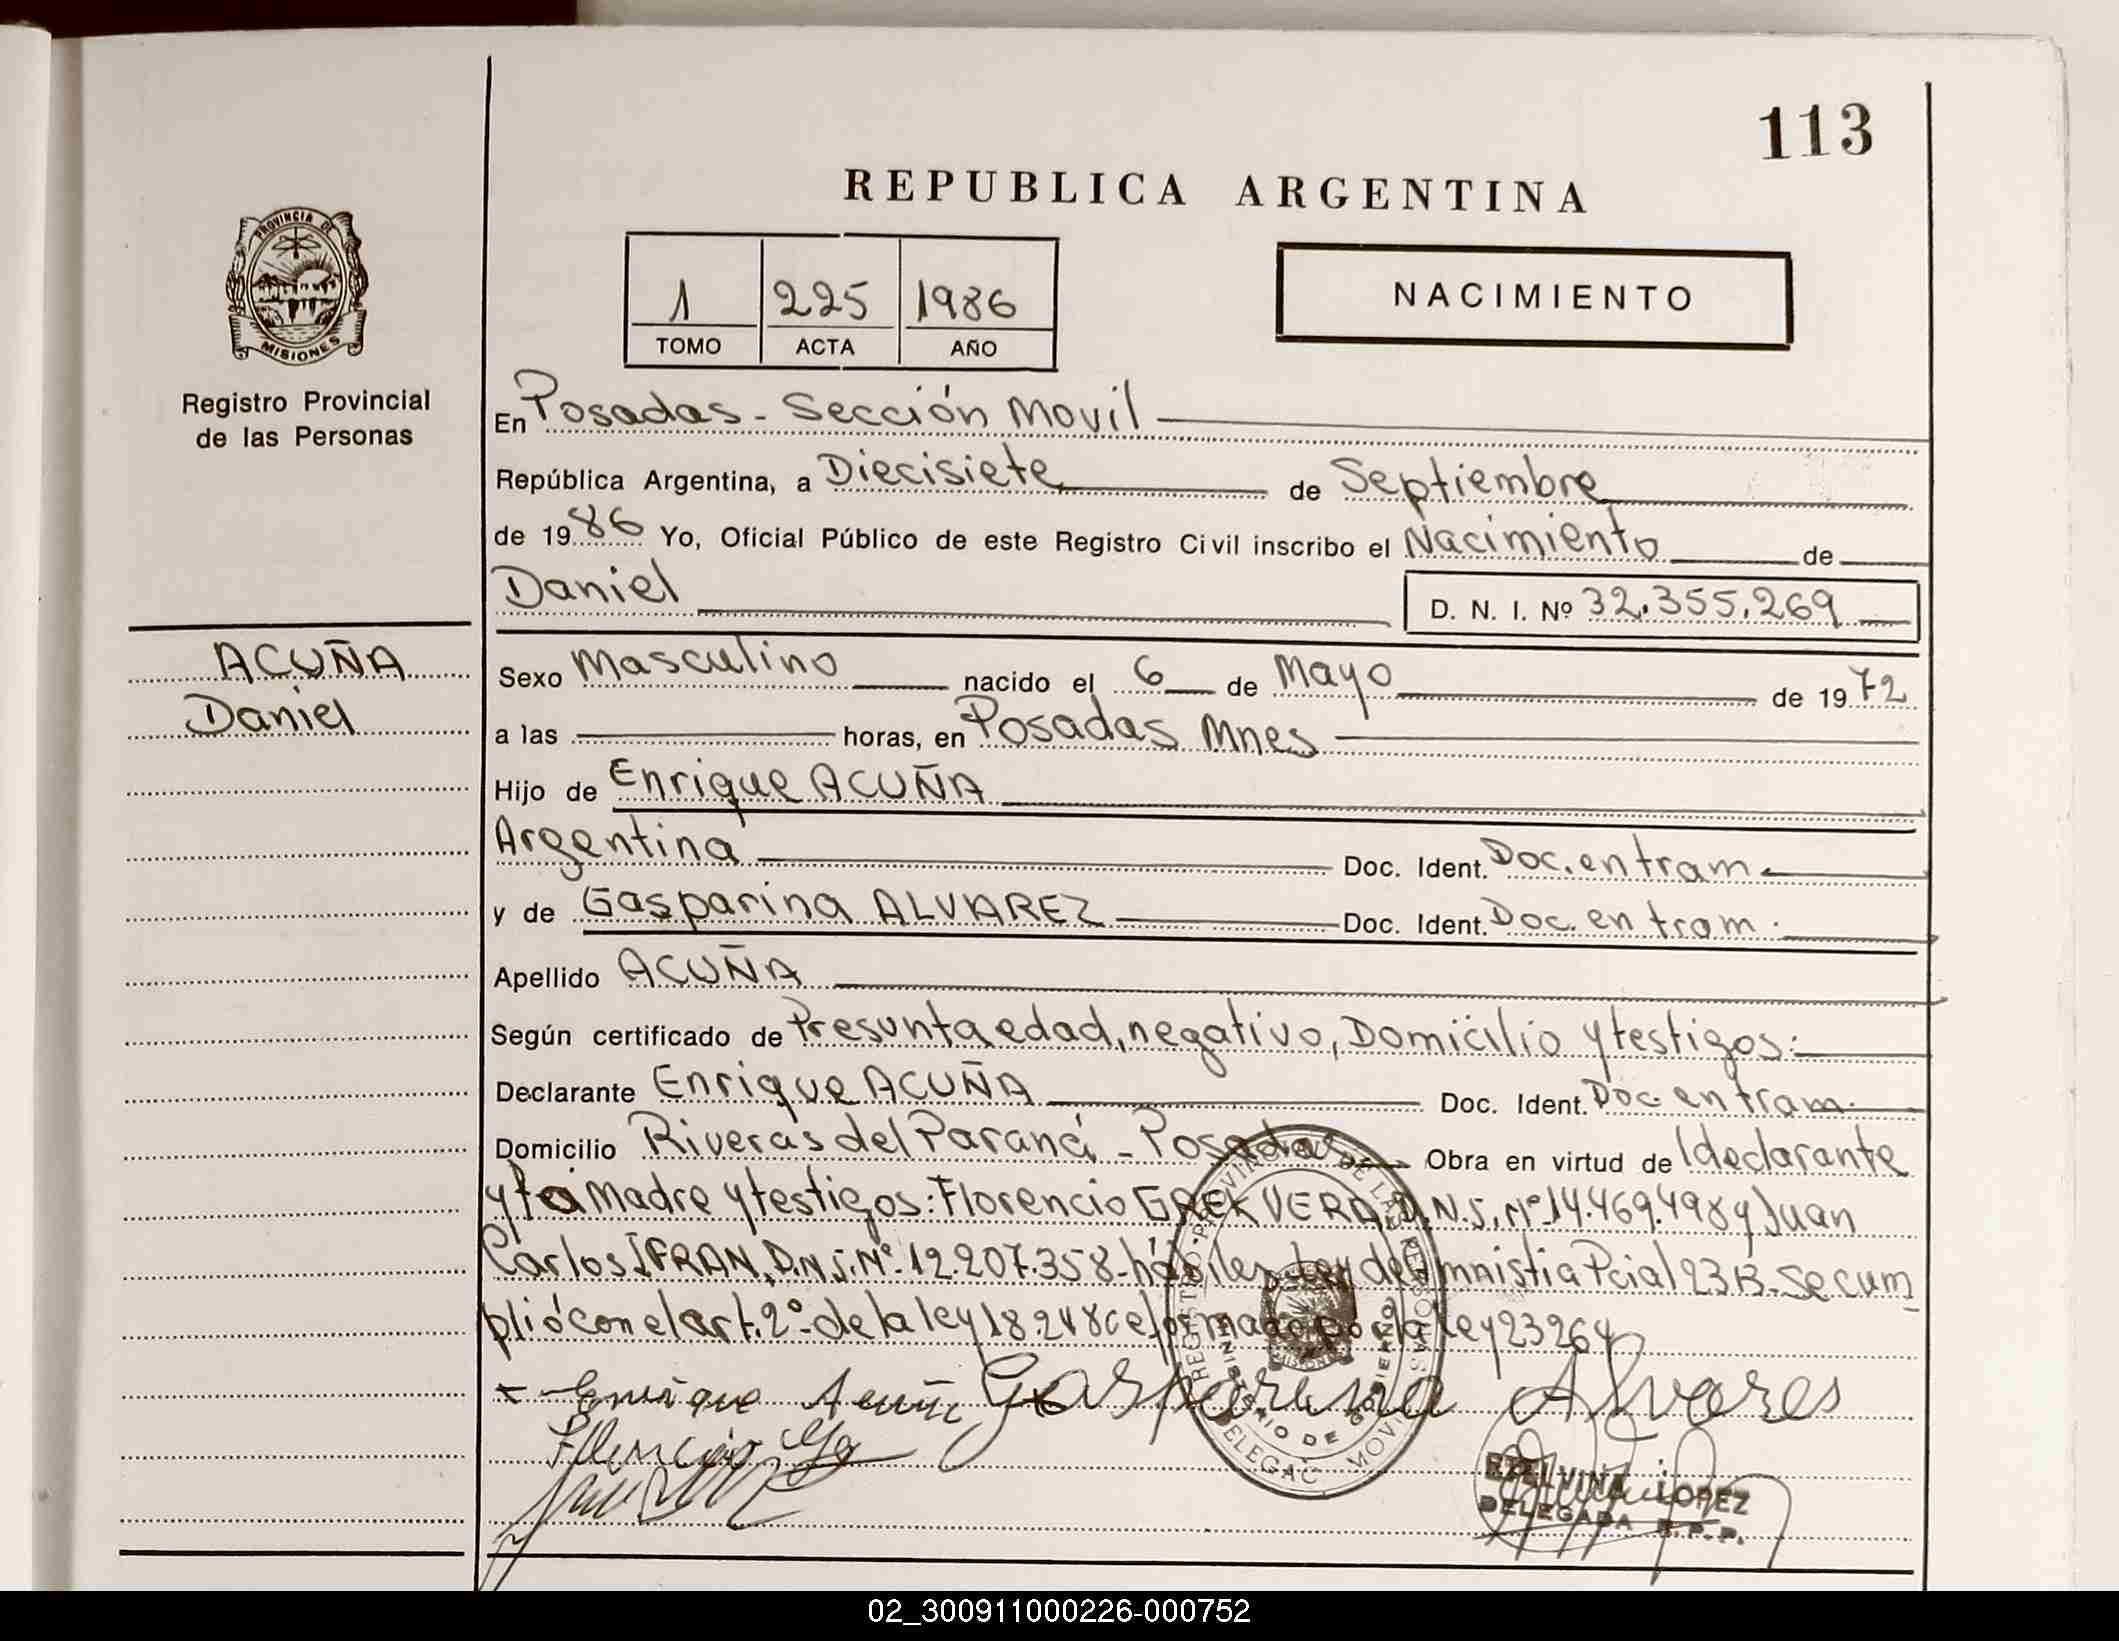 113
REPUBLICA ARGENTINA
PROVINCIA DE
MISIONES
Registro Provincial
de las Personas
1 225 1986
TOMO ACTA AÑO
NACIMIENTO
En Posadas - Sección Movil
República Argentina, a Diecisiete de Septiembre
de 1986 Yo, Oficial Público de este Registro Civil inscribo el Nacimiento de
Daniel D. N. I. Nº 32.355.269
ACUÑA
Daniel
Sexo Masculino nacido el 6 de Mayo de 1972
a las horas, en Posadas Mnes
Hijo de Enrique ACUÑA
Argentina Doc. Ident. Doc. en tram.
y de Gasparina ALVAREZ Doc. Ident. Doc. en tram.
Apellido ACUÑA
Según certificado de Presunta edad, negativo, Domicilio y testigos:
Declarante Enrique ACUÑA Doc. Ident. Doc en tram.
Domicilio Riveras del Paraná - Posadas Obra en virtud de (declarante
y la Madre y testigos: Florencio VERA, D.N.I. Nº 14.469.498 y Juan
Carlos IFRAN, D.N.I. Nº 12.207.358 - hábiles - Ley de Amnistia Pcial 23 - Se cum
plió con el art. 2º de la ley 18.248 reformado por la ley 23264
Enrique Acuña Gasparina Alvares
REGISTRO PROVINCIAL DE LAS PERSONAS
MINISTERIO DE GOBIERNO
DELEGAC MOVIL
LOPEZ
DELEGADA R.P.P.
02_300911000226-000752